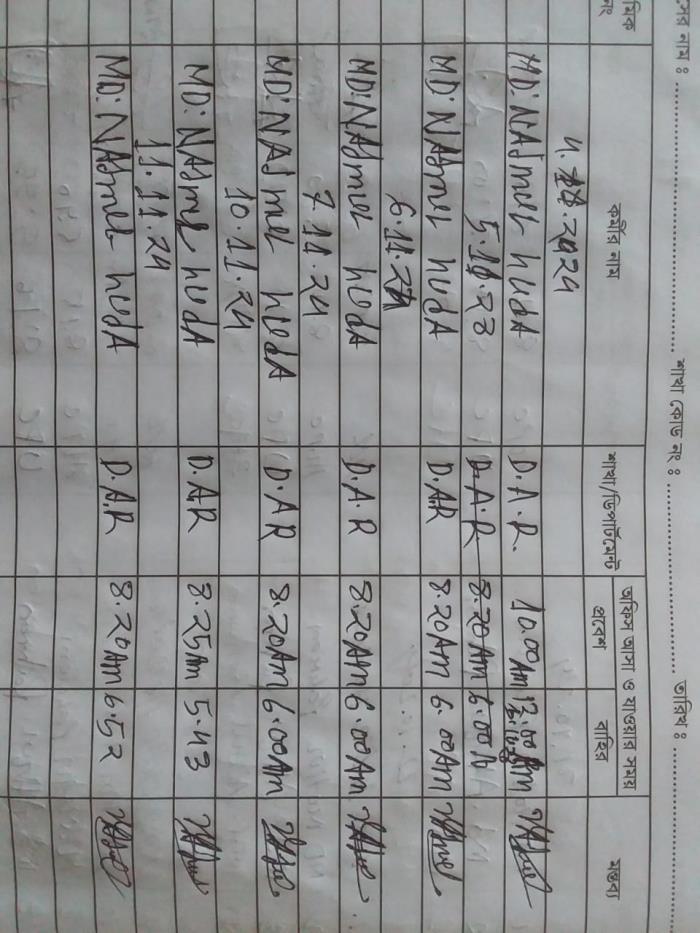 নের নাম : ........................ শাখা কোড নং : ........................ তারিখ : ........................
মিক নং
কর্মীর নাম
শাখা/ডিপার্টমেন্ট
অফিস আসা ও যাওয়ার সময়
প্রবেশ
বাহির
মন্তব্য
MD: NAJmul hudA D.A.R. 10.00Am
5.11.23
D.A.R 8.20Am 6.00
MD: NAJmul hudA D.A.R 8.20Am 6.00Am
6.11.24
MD: NAJmul hudA D.A.R 8.20Am 6.00Am
7.11.24
MD: NAJmul hudA D.A.R 8.20Am 6.00Am
10.11.24
MD: NAJmul hudA D.A.R 8.25Am 5.43
11.11.24
MD: NAJmul hudA D.A.R 8.20Am 6.52